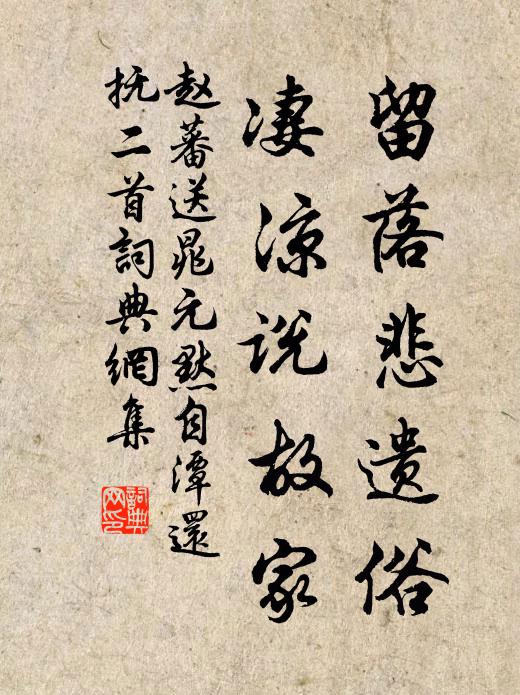 留落悲遗俗
凄凉说故家
赵蕃送晁元默自潭還
抚二首詞典網集
詞典
网印